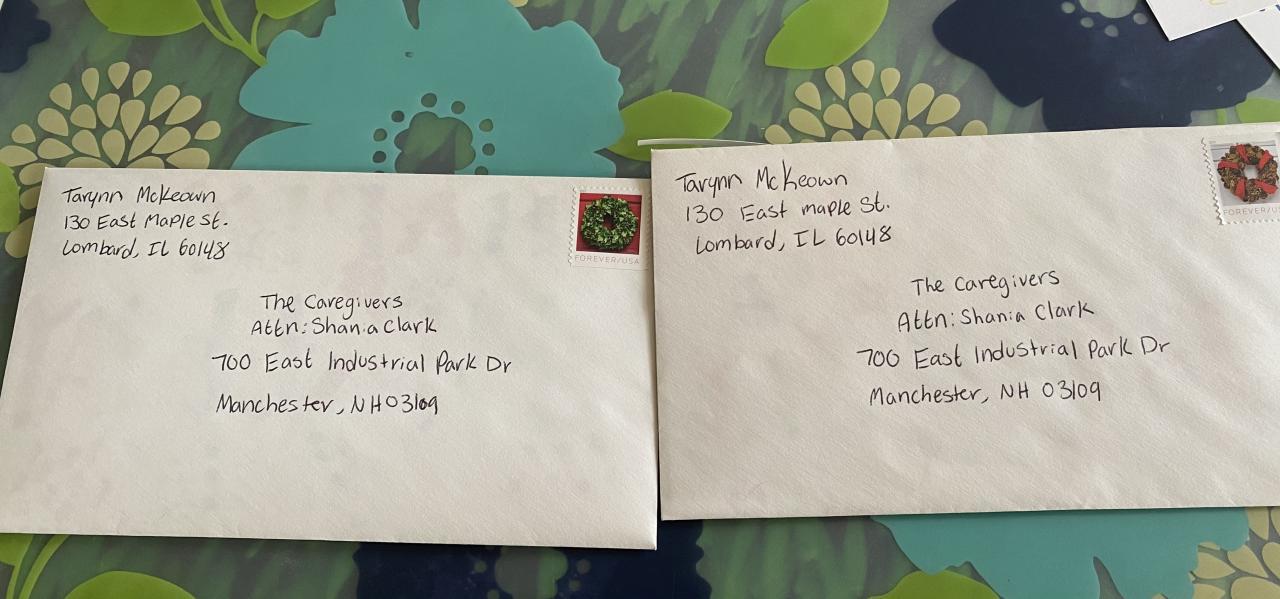 Tarynn McKeown
130 East Maple St.
Lombard, IL 60148
FOREVER/USA
The Caregivers
Attn: Shania Clark
700 East Industrial Park Dr
Manchester, NH 03109
Tarynn McKeown
130 East maple St.
Lombard, IL 60148
FOREVER/US
The Caregivers
Attn: Shania Clark
700 East Industrial Park Dr
Manchester, NH 03109